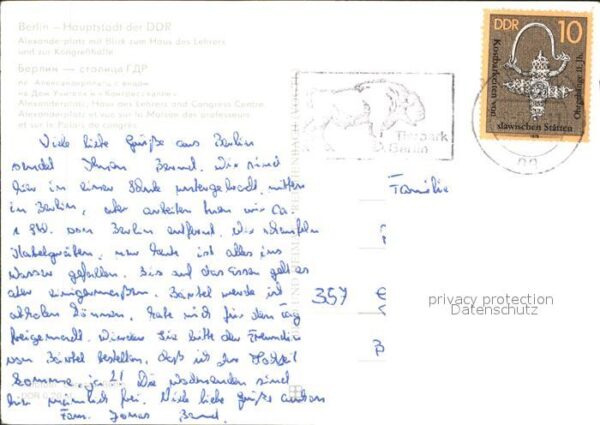 Berlin – Hauptstadt der DDR
Alexanderplatz mit Blick zum Haus des Lehrers
und zur Kongreßhalle
Берлин — столица ГДР
пл. Александерплац с видом
на Дом Учителя и
Alexanderplatz, Haus des Lehrers and Congress Centre
Alexanderplatz et vue sur la Maison des professeurs
et sur le Palais de congrès
DDR 10
Kostbarkeiten von
slawischen Stätten
11. Jh.
Tierpark
Berlin
Viele liebe Grüße aus Berlin
sendet Ihnen Bernd. Wir sind
hier in einer Schule untergebracht, mitten
in Berlin, aber arbeiten tuen wir ca.
1 Std. von Berlin entfernt. Wir
Kabelgräben, nur heute ist alles ins
Wasser gefallen. Bis auf das Essen geht es
aber einigermaßen. Bärbel werde ich
abholen können, habe mich für den Tag
freigemacht. Würden Sie bitte der Freundin
von Bärbel bestellen, daß ich zur Hochzeit
komme, ja?! Die Wochenenden sind
hier nämlich frei. Viele liebe Grüße an
Fam. Jonas Bernd.
Familie
357
privacy protection
Datenschutz